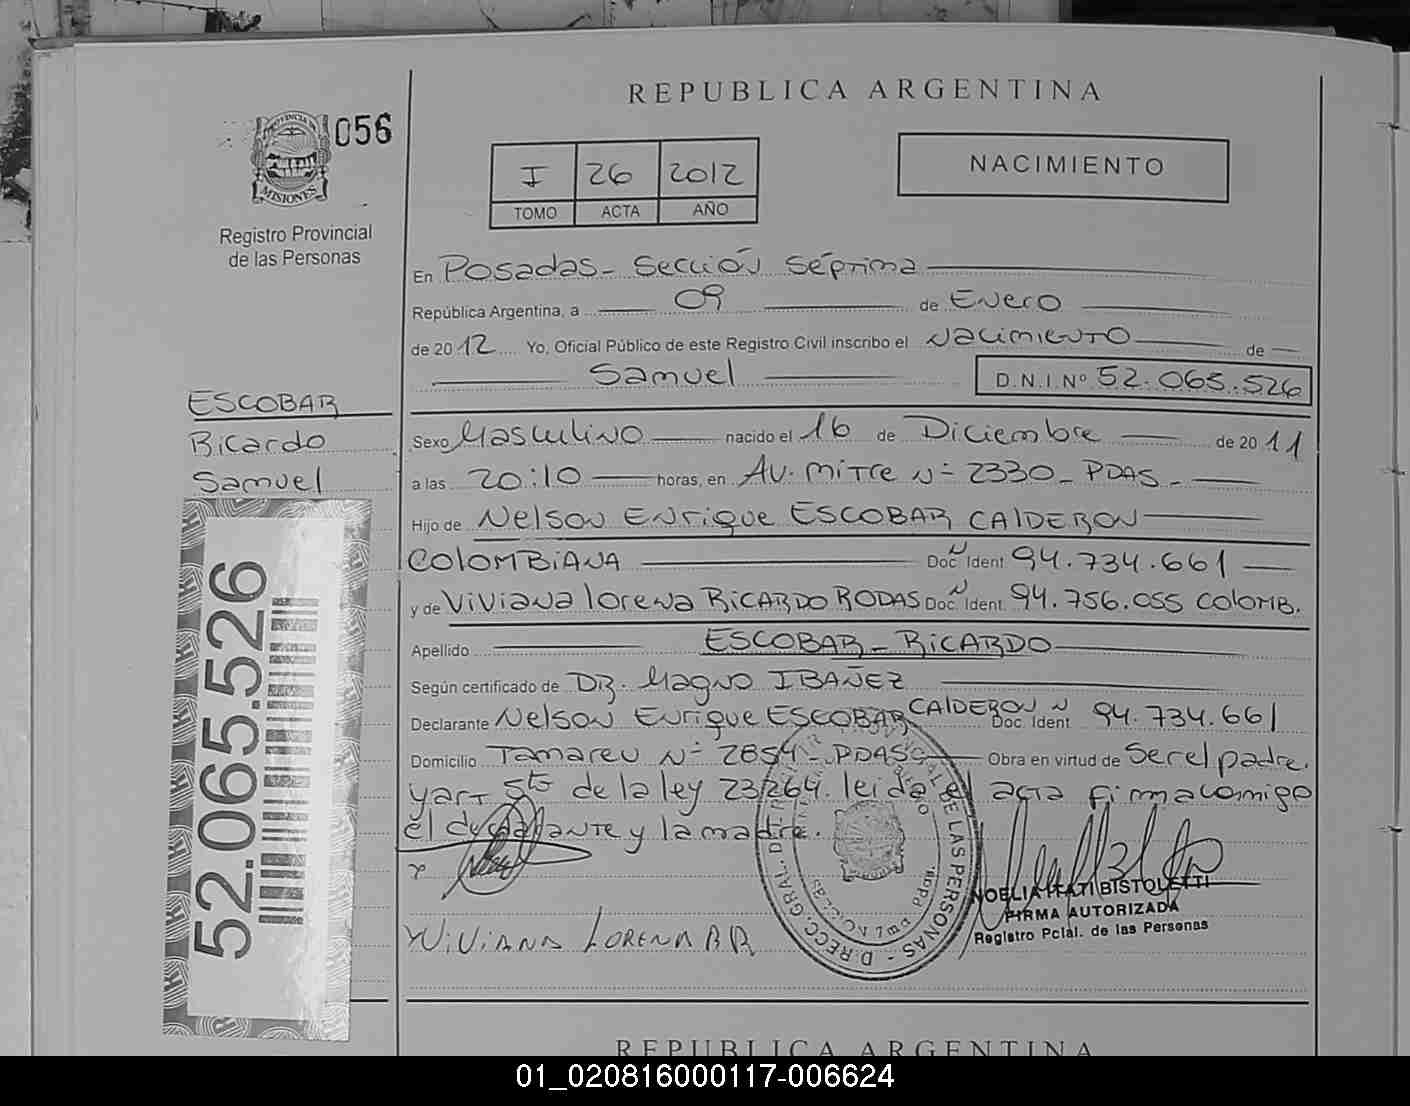 REPUBLICA ARGENTINA
056
PROVINCIA DE MISIONES
Registro Provincial
de las Personas
I 26 2012
TOMO ACTA AÑO
NACIMIENTO
En Posadas - Sección Séptima
República Argentina, a 09 de Enero
de 2012 Yo, Oficial Público de este Registro Civil inscribo el Nacimiento de
Samuel D.N.I. Nº 52.065.526
ESCOBAR
Ricardo
Samuel
Sexo Masculino nacido el 16 de Diciembre de 2011
a las 20:10 horas, en Av. Mitre Nº 2330 - PDAS -
Hijo de Nelson Enrique ESCOBAR CALDERON
COLOMBIANA Doc. Ident Nº 94.734.661
y de Viviana lorena RICARDO RODAS Doc. Ident. Nº 94.756.055 COLOMB.
Apellido ESCOBAR - RICARDO
Según certificado de DR. Magno IBAÑEZ
Declarante Nelson Enrique ESCOBAR CALDERON Doc. Ident Nº 94.734.661
Domicilio Tamareu Nº 2854 - PDAS Obra en virtud de Ser el padre.
y art 5to de la ley 23264. leida el acta firma conmigo
el declarante y la madre.
VIVIANA LORENA RR
NOELIA ITATI BISTOLETTI
FIRMA AUTORIZADA
Registro Pcial. de las Personas
52.065.526
REPUBLICA ARGENTINA
01_020816000117-006624